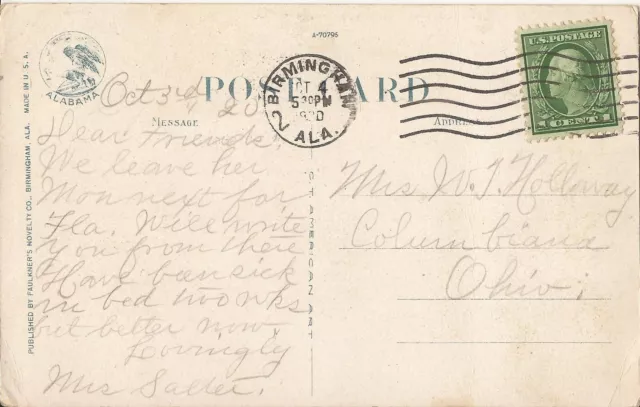 A-70796
POST CARD
ALABAMA
BIRMINGHAM
OCT 4
5 30PM
1920
ALA.
2
U.S. POSTAGE
1 CENT 1
MESSAGE
ADDRESS
Oct 3rd, 20
Dear Friends,
We leave her
Mon next for
Fla. Will write
you from there
Have been sick
in bed two wks
but better now
Lovingly
Mrs Salter.
Mrs. W. T. Holloway
Columbiana
Ohio.
PUBLISHED BY FAULKNER'S NOVELTY CO., BIRMINGHAM, ALA. MADE IN U.S.A.